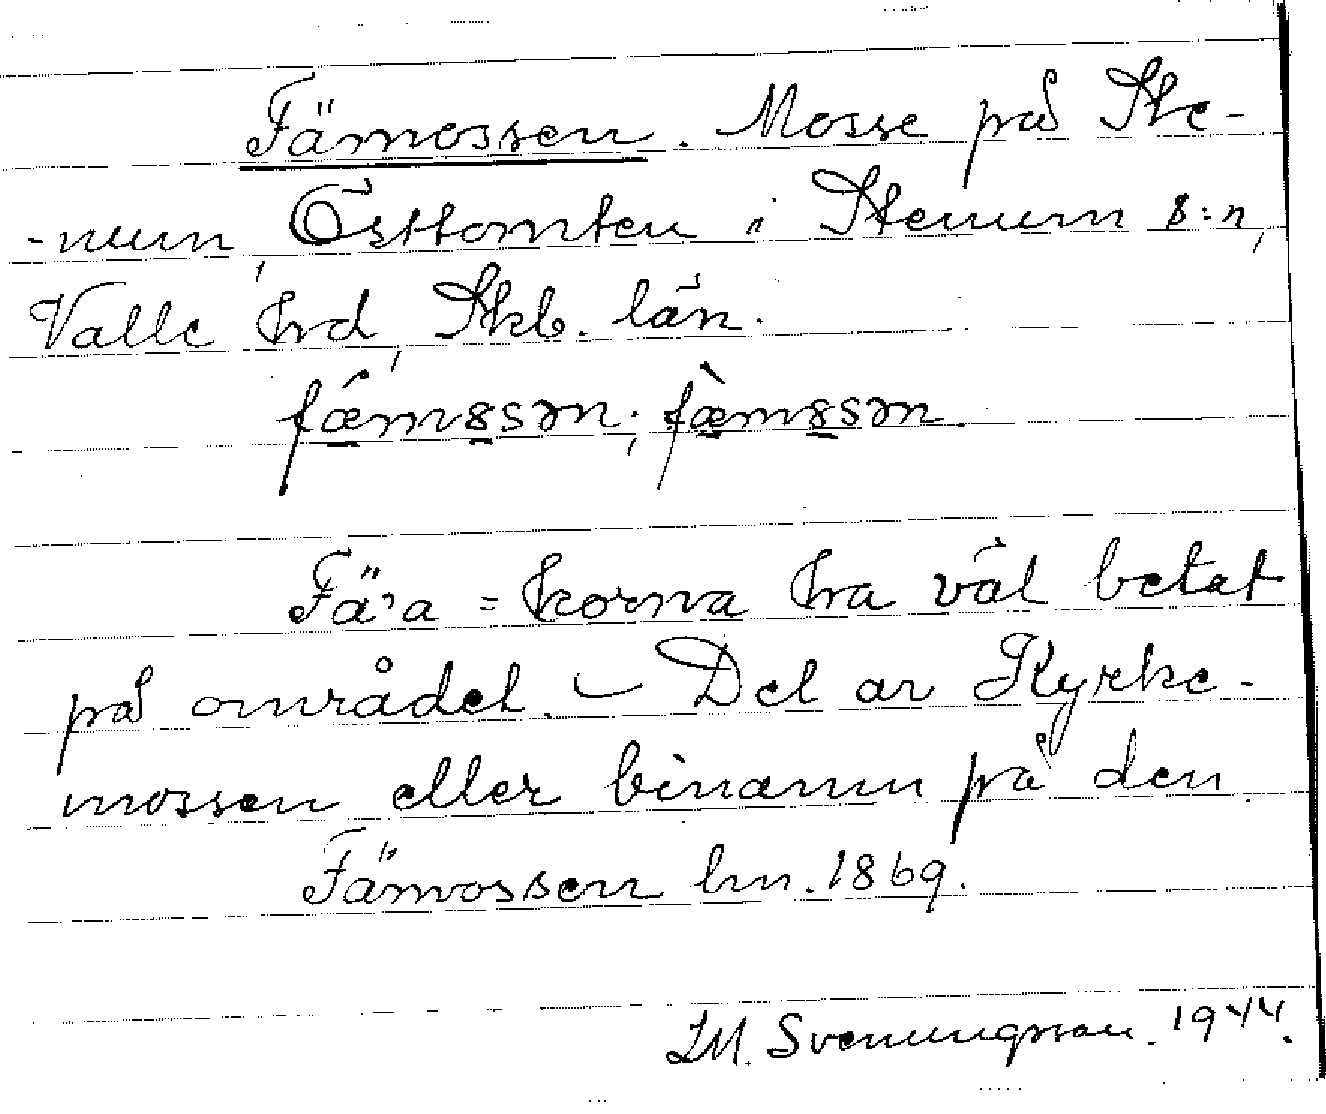 Fämossen. Mosse på Ste-
-num, Östtomten i Stenum s:n,
Valle hrd, Skb. län.
fǽm8sən; fæ̀m8sən.
Fä'a = korna ha väl betat
på området. – Del av Kyrke-
mossen eller binamn på den.
Fämossen lm. 1869.
I.M. Svenungsson. 1944.